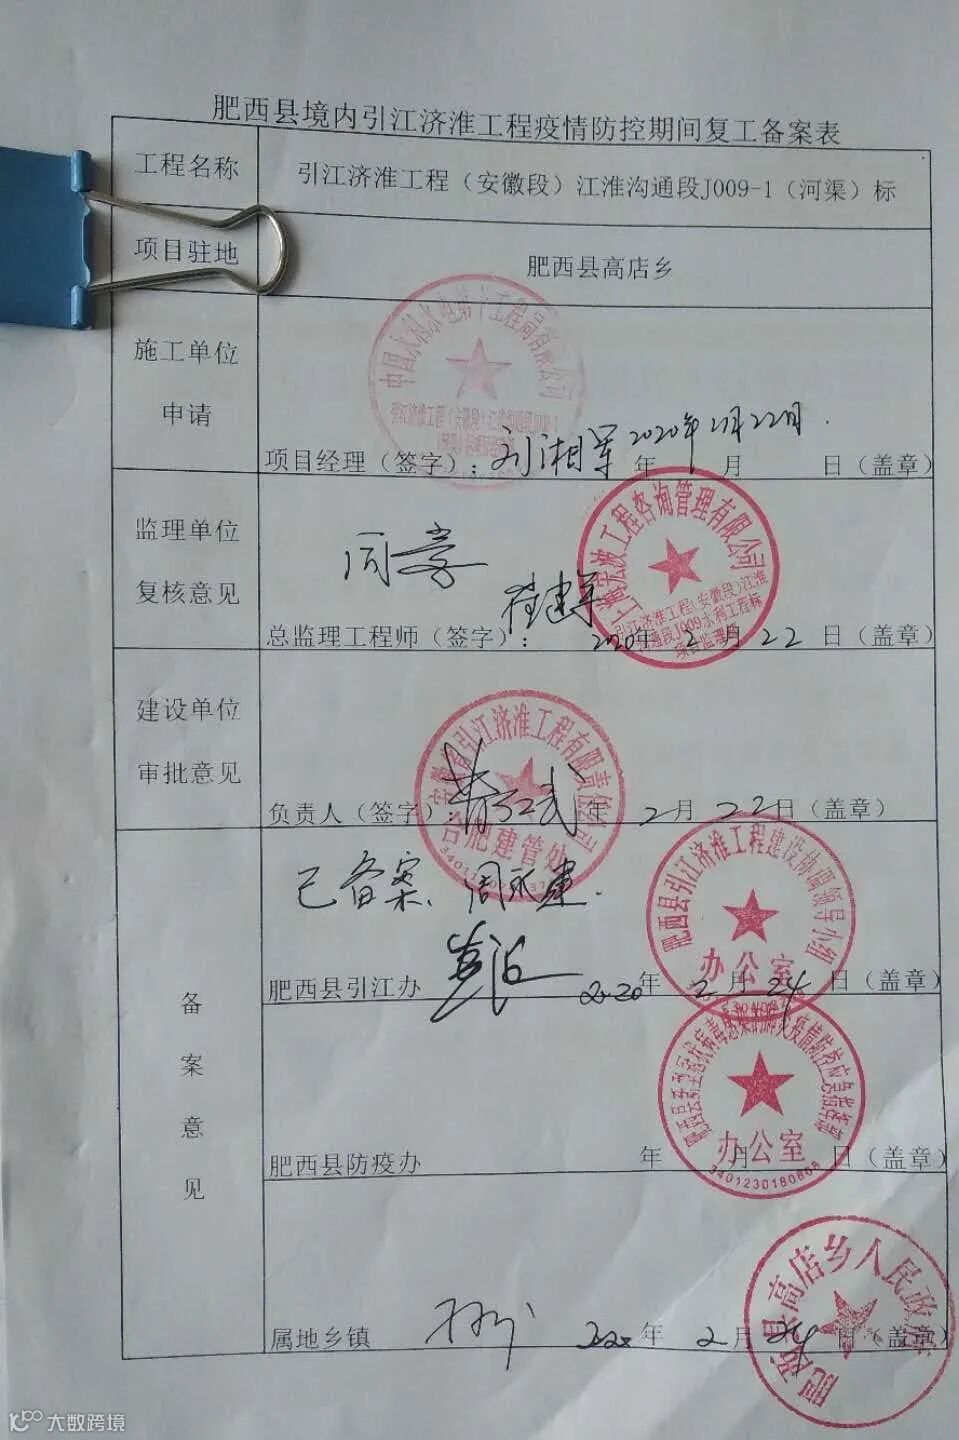 肥西县境内引江济淮工程疫情防控期间复工备案表
工程名称
引江济淮工程（安徽段）江淮沟通段J009-1（河渠）标
项目驻地
肥西县高店乡
施工单位
申请
中国水利水电第十工程局有限公司
项目经理（签字）：刘湘军 2020年2月22日
年 月 日（盖章）
监理单位
复核意见
同意
上海宏波工程咨询管理有限公司
引江济淮工程（安徽段）江淮
沟通段J009水利工程标
项目监理部
总监理工程师（签字）： 2020年2月22日（盖章）
建设单位
审批意见
安徽省引江济淮工程有限责任公司
合肥建管处
负责人（签字）： 年2月22日（盖章）
备案意见
已备案、周永建.
肥西县引江济淮工程建设协调领导小组
办公室
肥西县引江办 2020年2月24日（盖章）
办公室
3401230180808
肥西县防疫办 年 月 日（盖章）
肥西县高店乡人民政府
属地乡镇 2020年2月24日（盖章）
大数跨境